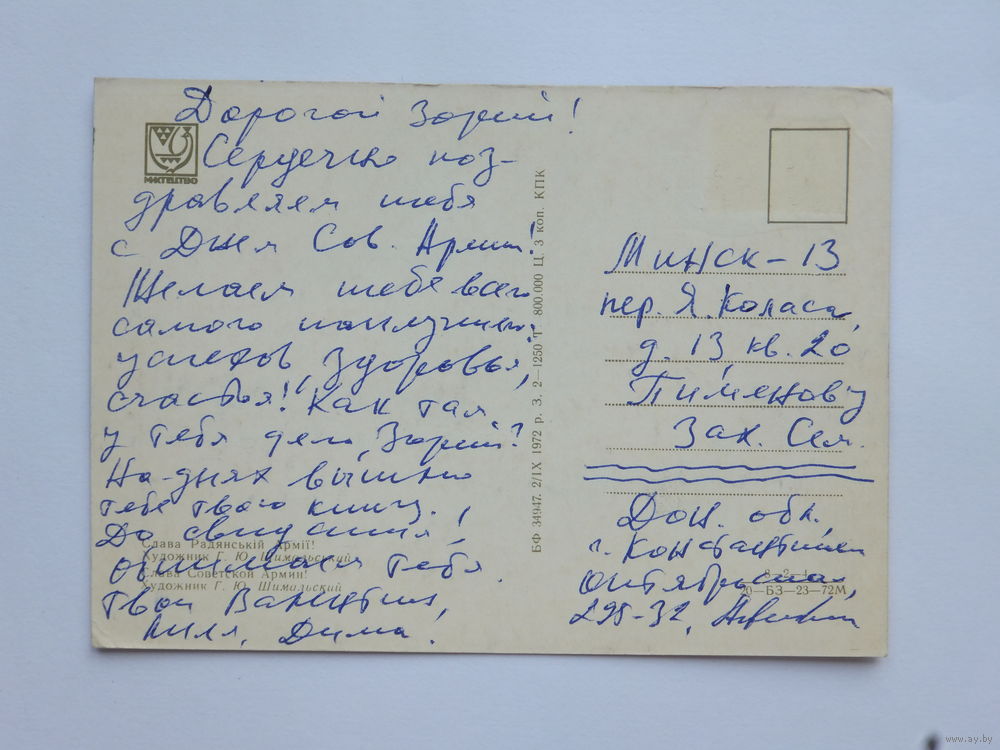 Дорогой Зорий!
Сердечно поз-
дравляем тебя
с Днем Сов. Армии!
Желаем тебе всего
самого наилучшего:
успехов, здоровья,
счастья! Как там
у тебя дела, Зорий?
На-днях вышлю
тебе твою книгу.
До свидания,
обнимаем тебя.
Твои Валентин,
Дима.
МИСТЕЦТВО
Слава Радянській Армії!
Художник Г. Ю. Шимальский
Слава Советской Армии!
Художник Г. Ю. Шимальский
БФ 34947. 2/IX 1972 р. З. 2—1250 Т. 800.000 Ц. 3 коп. КПК
Минск – 13
пер. Я. Коласа,
д. 13, кв. 20
Пименову
Зах. Сем.
Дон. обл.,
г. Константиновка
Октябрьская,
295-32,
8—2—4
20—БЗ—23—72М
www.ay.by